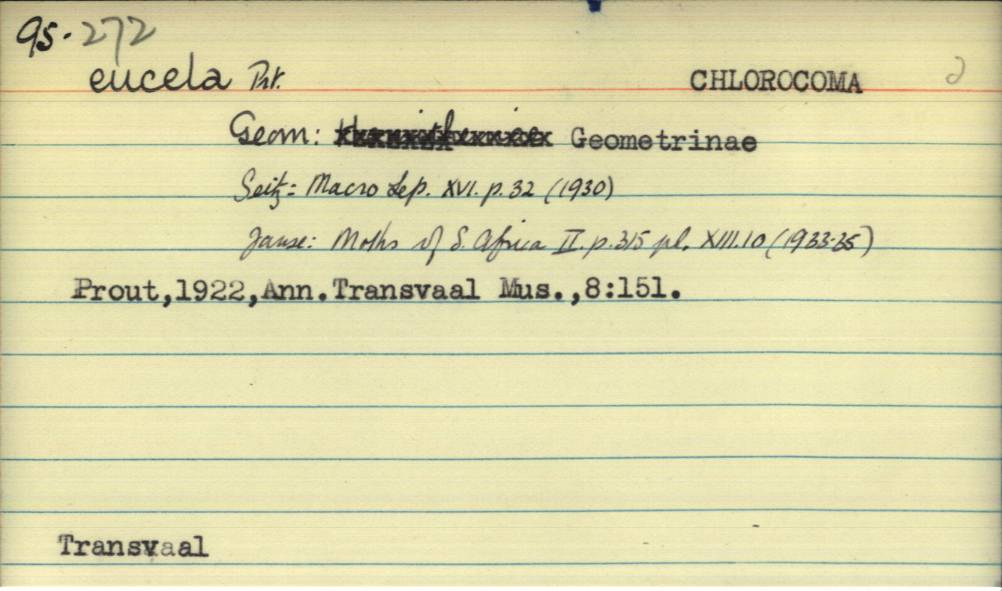 95.272
eucela Prt. CHLOROCOMA 2
Geom: Geometrinae
Seitz: Macro Lep. XVI. p. 32 (1930)
Janse: Moths of S. Africa II. p. 315 pl. XIII.10 (1933-35)
Prout,1922,Ann.Transvaal Mus.,8:151.
Transvaal